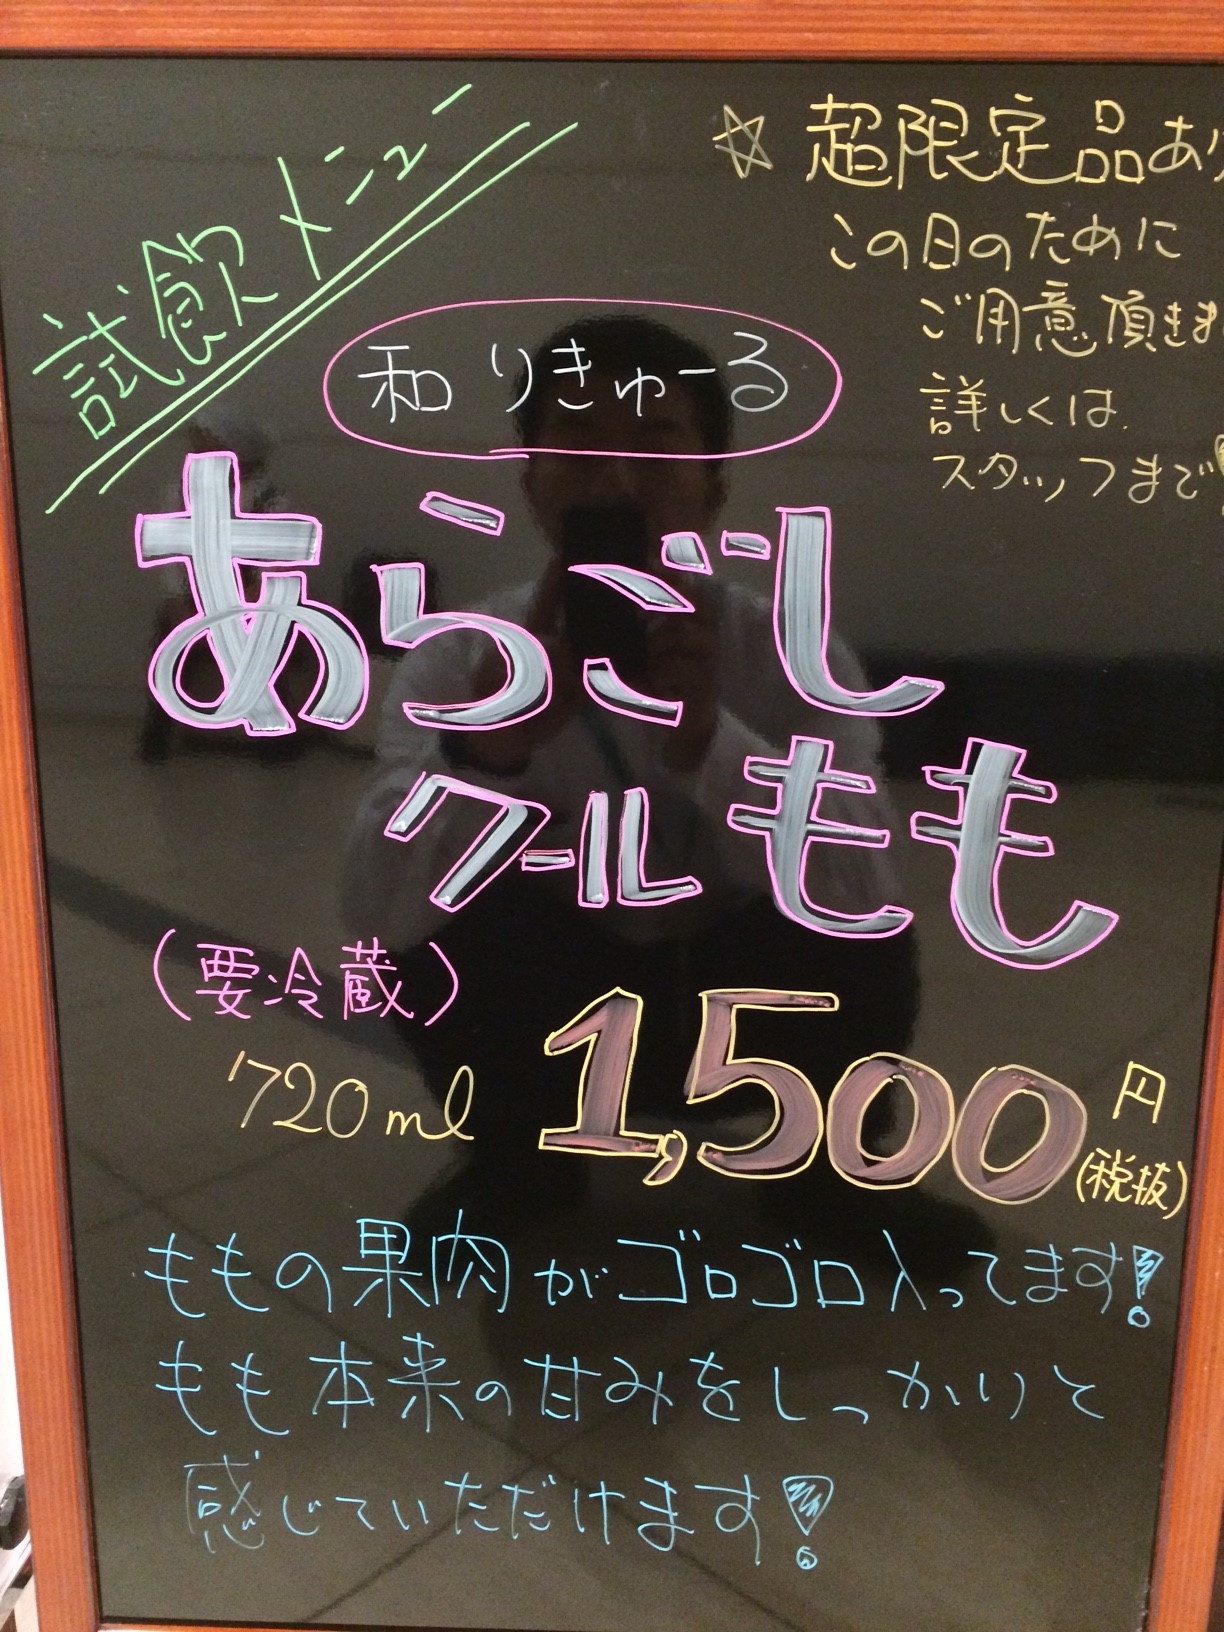 試飲メニュー
☆ 超限定品あり
この日のために
ご用意頂きま
詳しくは
スタッフまで
和りきゅーる
あらごし
クールもも
(要冷蔵)
720ml 1,500円
(税抜)
ももの果肉がゴロゴロ入ってます!
もも本来の甘みをしっかりと
感じていただけます!